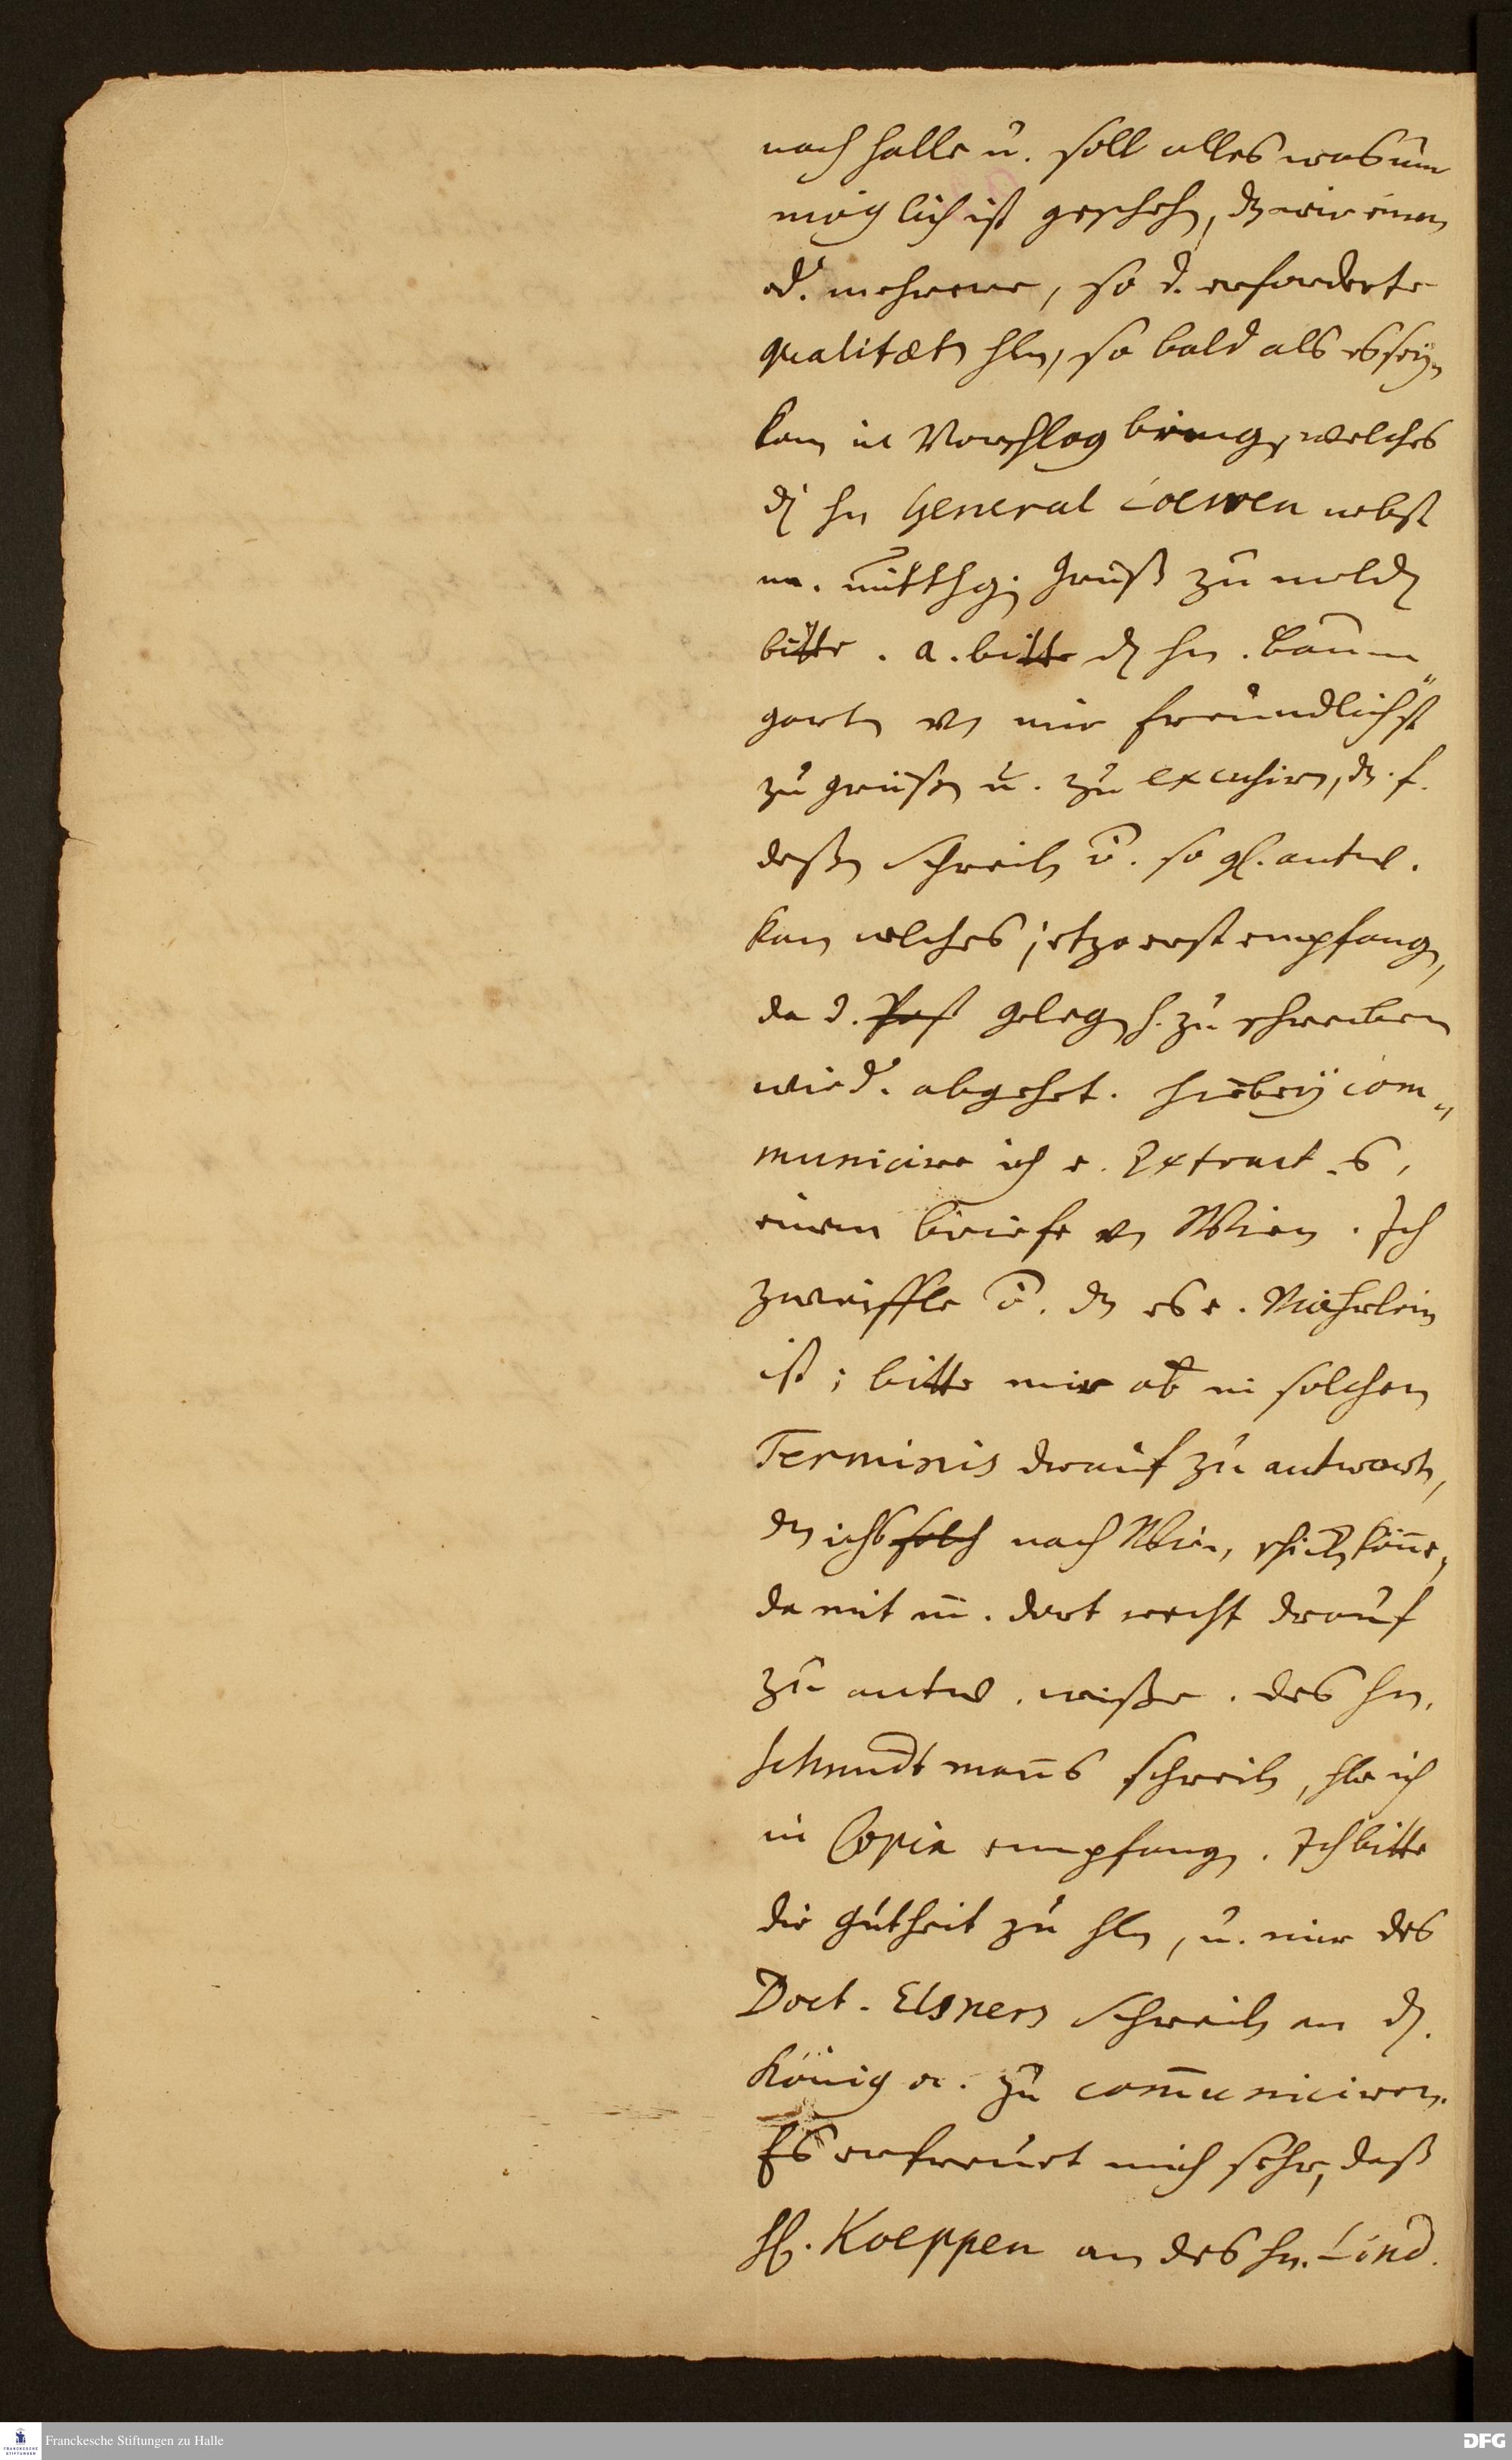 nach Halle u. soll alles was um
möglich ist geschehn, dz wir einen
od. mehrere, so d. erforderte
qualitætn hbn, so bald als es seyn
kan in Vorschlag bringn, welches
dn Hn General Loewen nebst
m. Gruß zu meldn
bitte. a. bitte dn Hn. Baum„
gartn vn mir freundlichst
zu grüßn u. zu excusirn, dz. f.
deßn Schreibn ô. so gl. antw.
kan welches jetzo erst empfang,
da d. Post gelegnh. zu schreiben
wied. abgehet. Hiebey com„
municire ich e. Extract s,
einem briefe vn Wien. Ich
zweiffle ô. dz es e. Mährlein
ist; bitte mir ab in solchen
Terminis drauf zu antwortn,
dz ichs solch nach Wien, schickn köñe,
da mit m. dort recht drauf
zu antw. wiße. des Hn.
Schmidtmañs schreibn, hbe ich
in Copia empfangn. Ich bitte
die gutheit zu hbn, u. mir des
Doct. Elsners Schreibn an dn.
König a. zu com̅uniciren.
Es erfreuet mich sehr, daß
H. Koeppen an des Hn. Lind.
Franckesche Stiftungen zu Halle
DFG